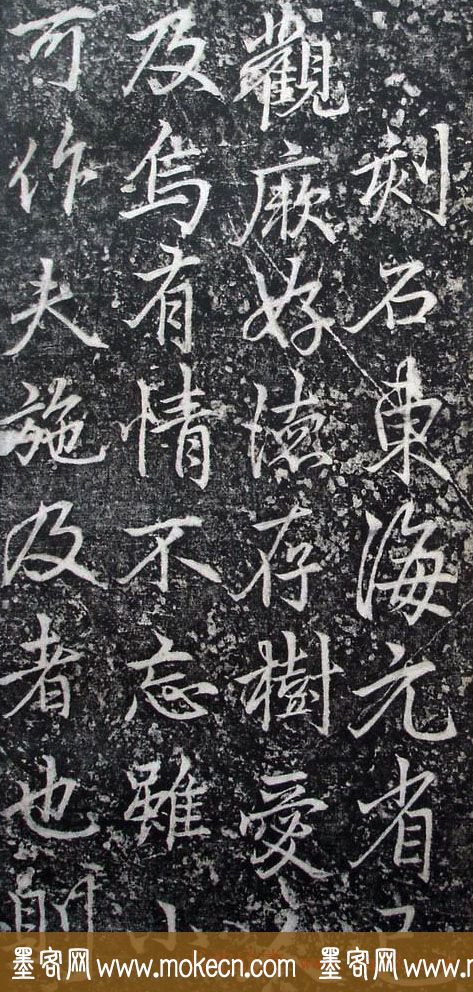 刻石東海元省
觀厥好德存樹愛
及烏有情不忘雖
可作夫施及者也
墨客网 www.mokecn.com 墨客网 www.mokecn.com